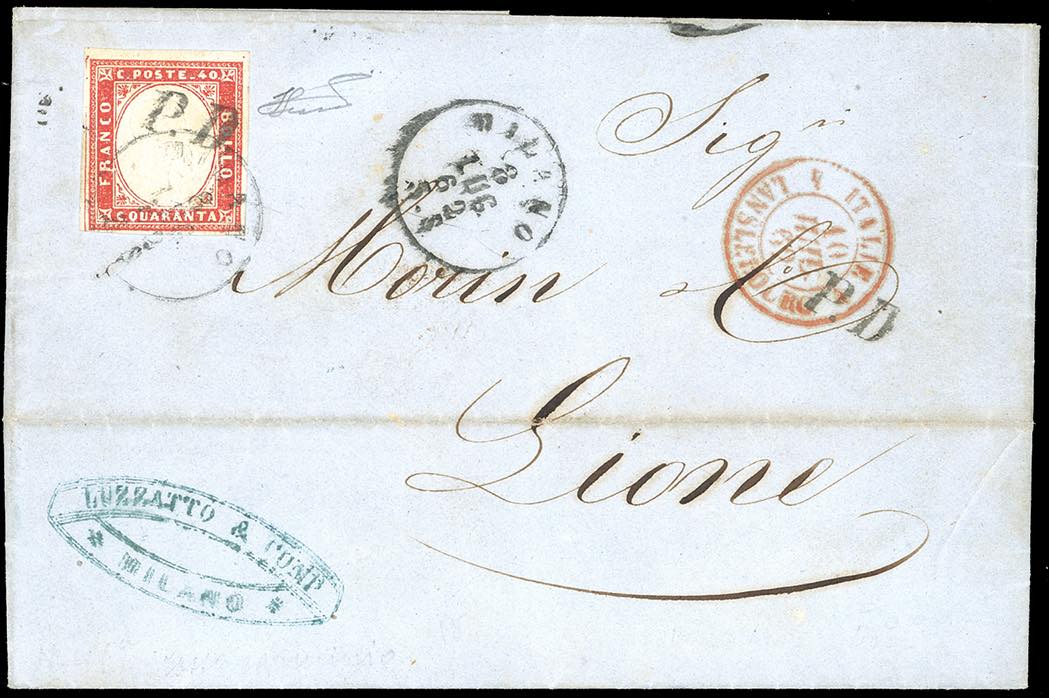 C. POSTE. 40
FRANCO
BOLLO
C. QUARANTA
P.D
MILANO
8
LUG
62
Sig.ʳ
Morin C.
Lione
ITALIE
10
62
P.D
LUZZATTO & COMP
* MILANO *